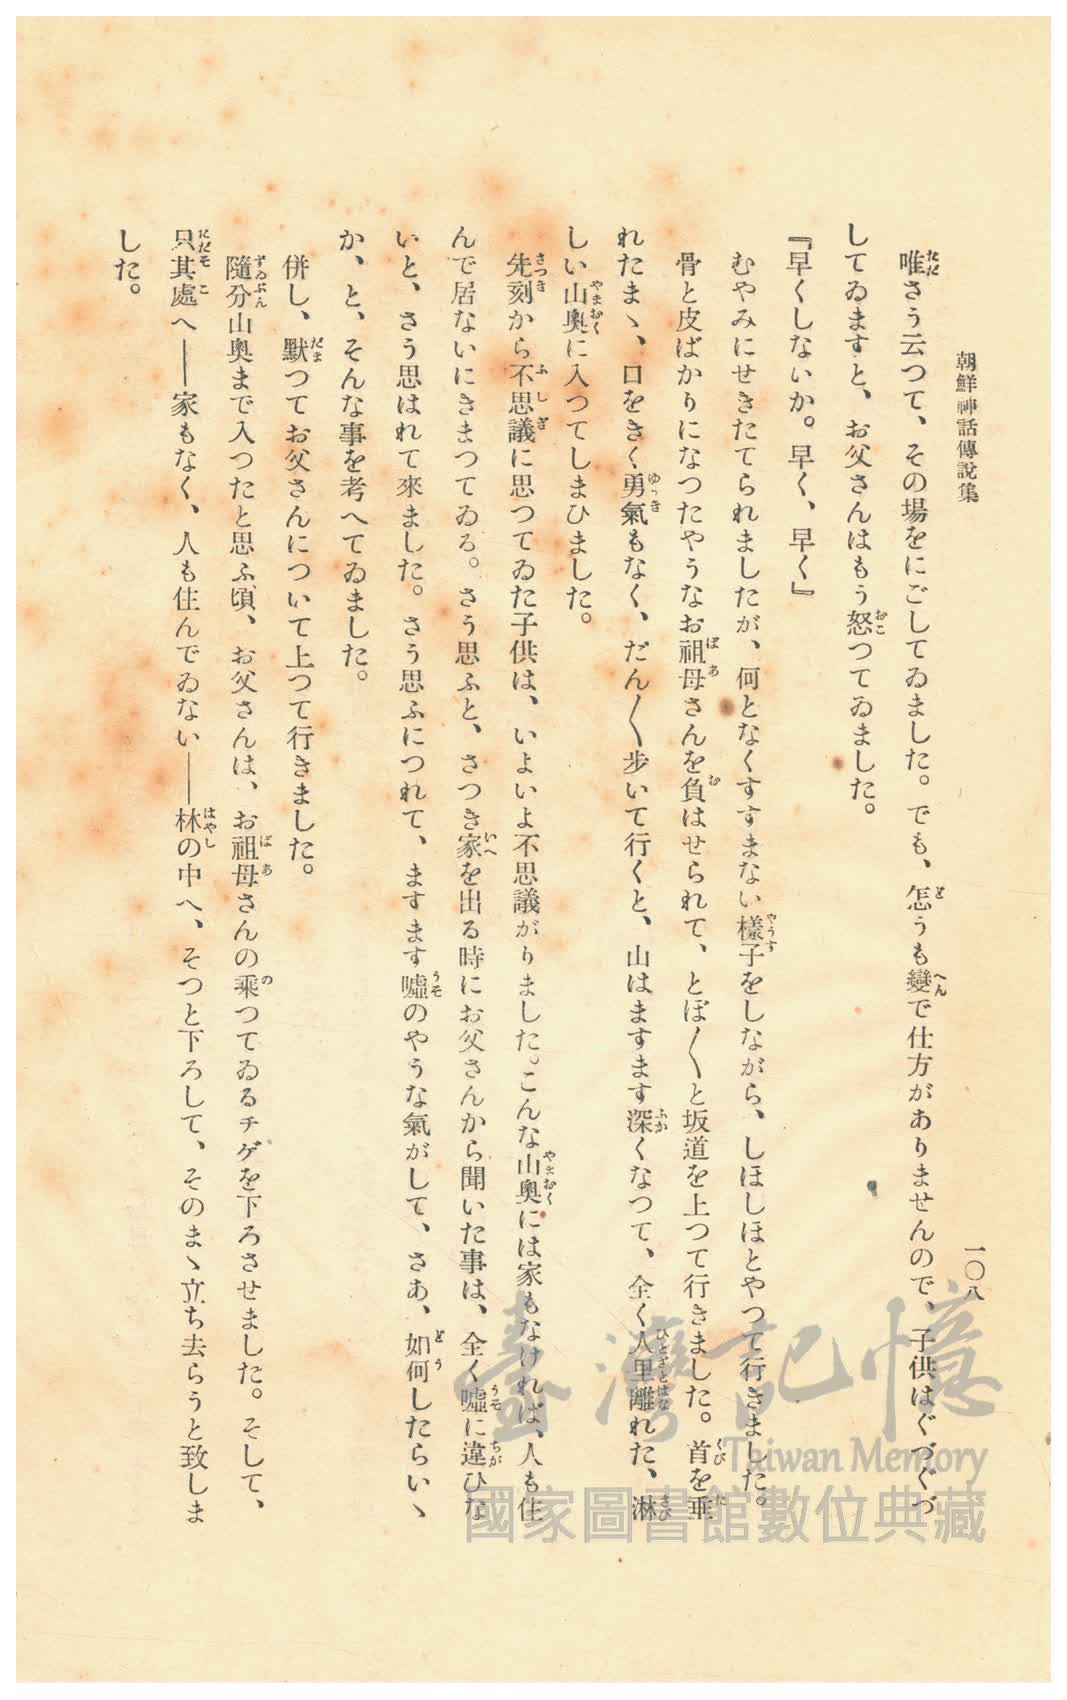 朝鮮神話傳說集
一〇八
唯さう云つて、その場をにごしてゐました。でも、怎うも變で仕方がありませんので、子供はぐづぐづ
してゐますと、お父さんはもう怒つてゐました。
『早くしないか。早く、早く』
むやみにせきたてられましたが、何となくすすまない樣子をしながら、しほしほとやつて行きました。
骨と皮ばかりになつたやうなお祖母さんを負はせられて、とぼ〳〵と坂道を上つて行きました。首を垂
れたまゝ、口をきく勇氣もなく、だん〳〵步いて行くと、山はますます深くなつて、全く人里離れた、淋
しい山奧に入つてしまひました。
先刻から不思議に思つてゐた子供は、いよいよ不思議がりました。こんな山奧には家もなければ、人も住
んで居ないにきまつてゐる。さう思ふと、さつき家を出る時にお父さんから聞いた事は、全く噓に違ひな
いと、さう思はれて來ました。さう思ふにつれて、ますます噓のやうな氣がして、さあ、如何したらいゝ
か、と、そんな事を考へてゐました。
併し、默つてお父さんについて上つて行きました。
隨分山奧まで入つたと思ふ頃、お父さんは、お祖母さんの乘つてゐるチゲを下ろさせました。そして、
只其處へ――家もなく、人も住んでゐない――林の中へ、そつと下ろして、そのまゝ立ち去らうと致しま
した。
臺灣記憶
Taiwan Memory
國家圖書館數位典藏